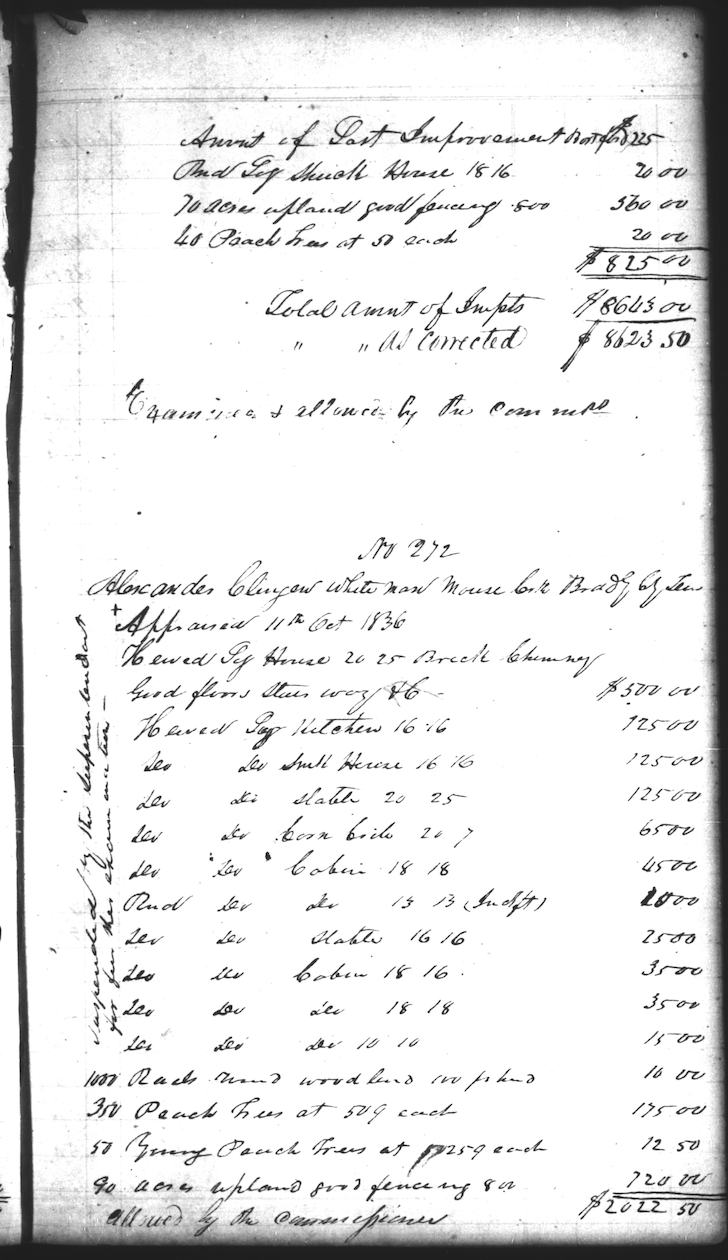 Amnt of Lost Improvement Brot ford $225
Rnd Log Shuck House 18 16 20 00
70 acres upland good fencing 800 560 00
40 Peach Trees at 50 each 20 00
$825 00
Total Amnt of Impts $8643 00
" " As corrected $8623 50
Examined & allowed by the commrs
No 272
Alexander Clingen White man Mouse Crk Brady Cty Ten
+ Appraised 11th Oct 1836
Hewed Log House 20 25 Brick Chimney
Good floors Stairs way &C $500 00
Hewed Log Kitchen 16 16 125 00
Do Do Smk House 16 16 125 00
Do Do Stable 20 25 125 00
Do Do Corn Crib 20 7 65 00
Do Do Cabin 18 18 45 00
Rnd Do Do 13 13 10 00
Do Do Stable 16 16 25 00
Do Do Cabin 18 16 35 00
Do Do Do 18 18 35 00
Do Do Do 10 10 15 00
1000 Rails round woodland 100 p hnd 10 00
350 Peach Trees at 50¢ each 175 00
50 Young Peach Trees at 25¢ each 12 50
90 acres upland good fencing 800 720 00
$2022 50
allowed by the commissioner
Suspended by the Superintendant
for further examination –